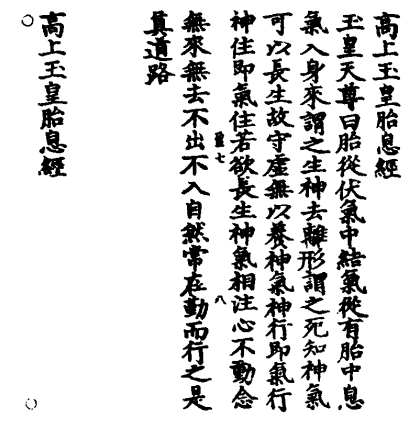 高上玉皇胎息經
玉皇天尊曰胎從伏氣中結氣從有胎中息
氣入身來謂之生神去離形謂之死知神氣
可以長生故守虛無以養神氣神行即氣行
神住即氣住若欲長生神氣相注心不動念
盈七 八
無來無去不出不入自然常在勤而行之是
眞道路
高上玉皇胎息經